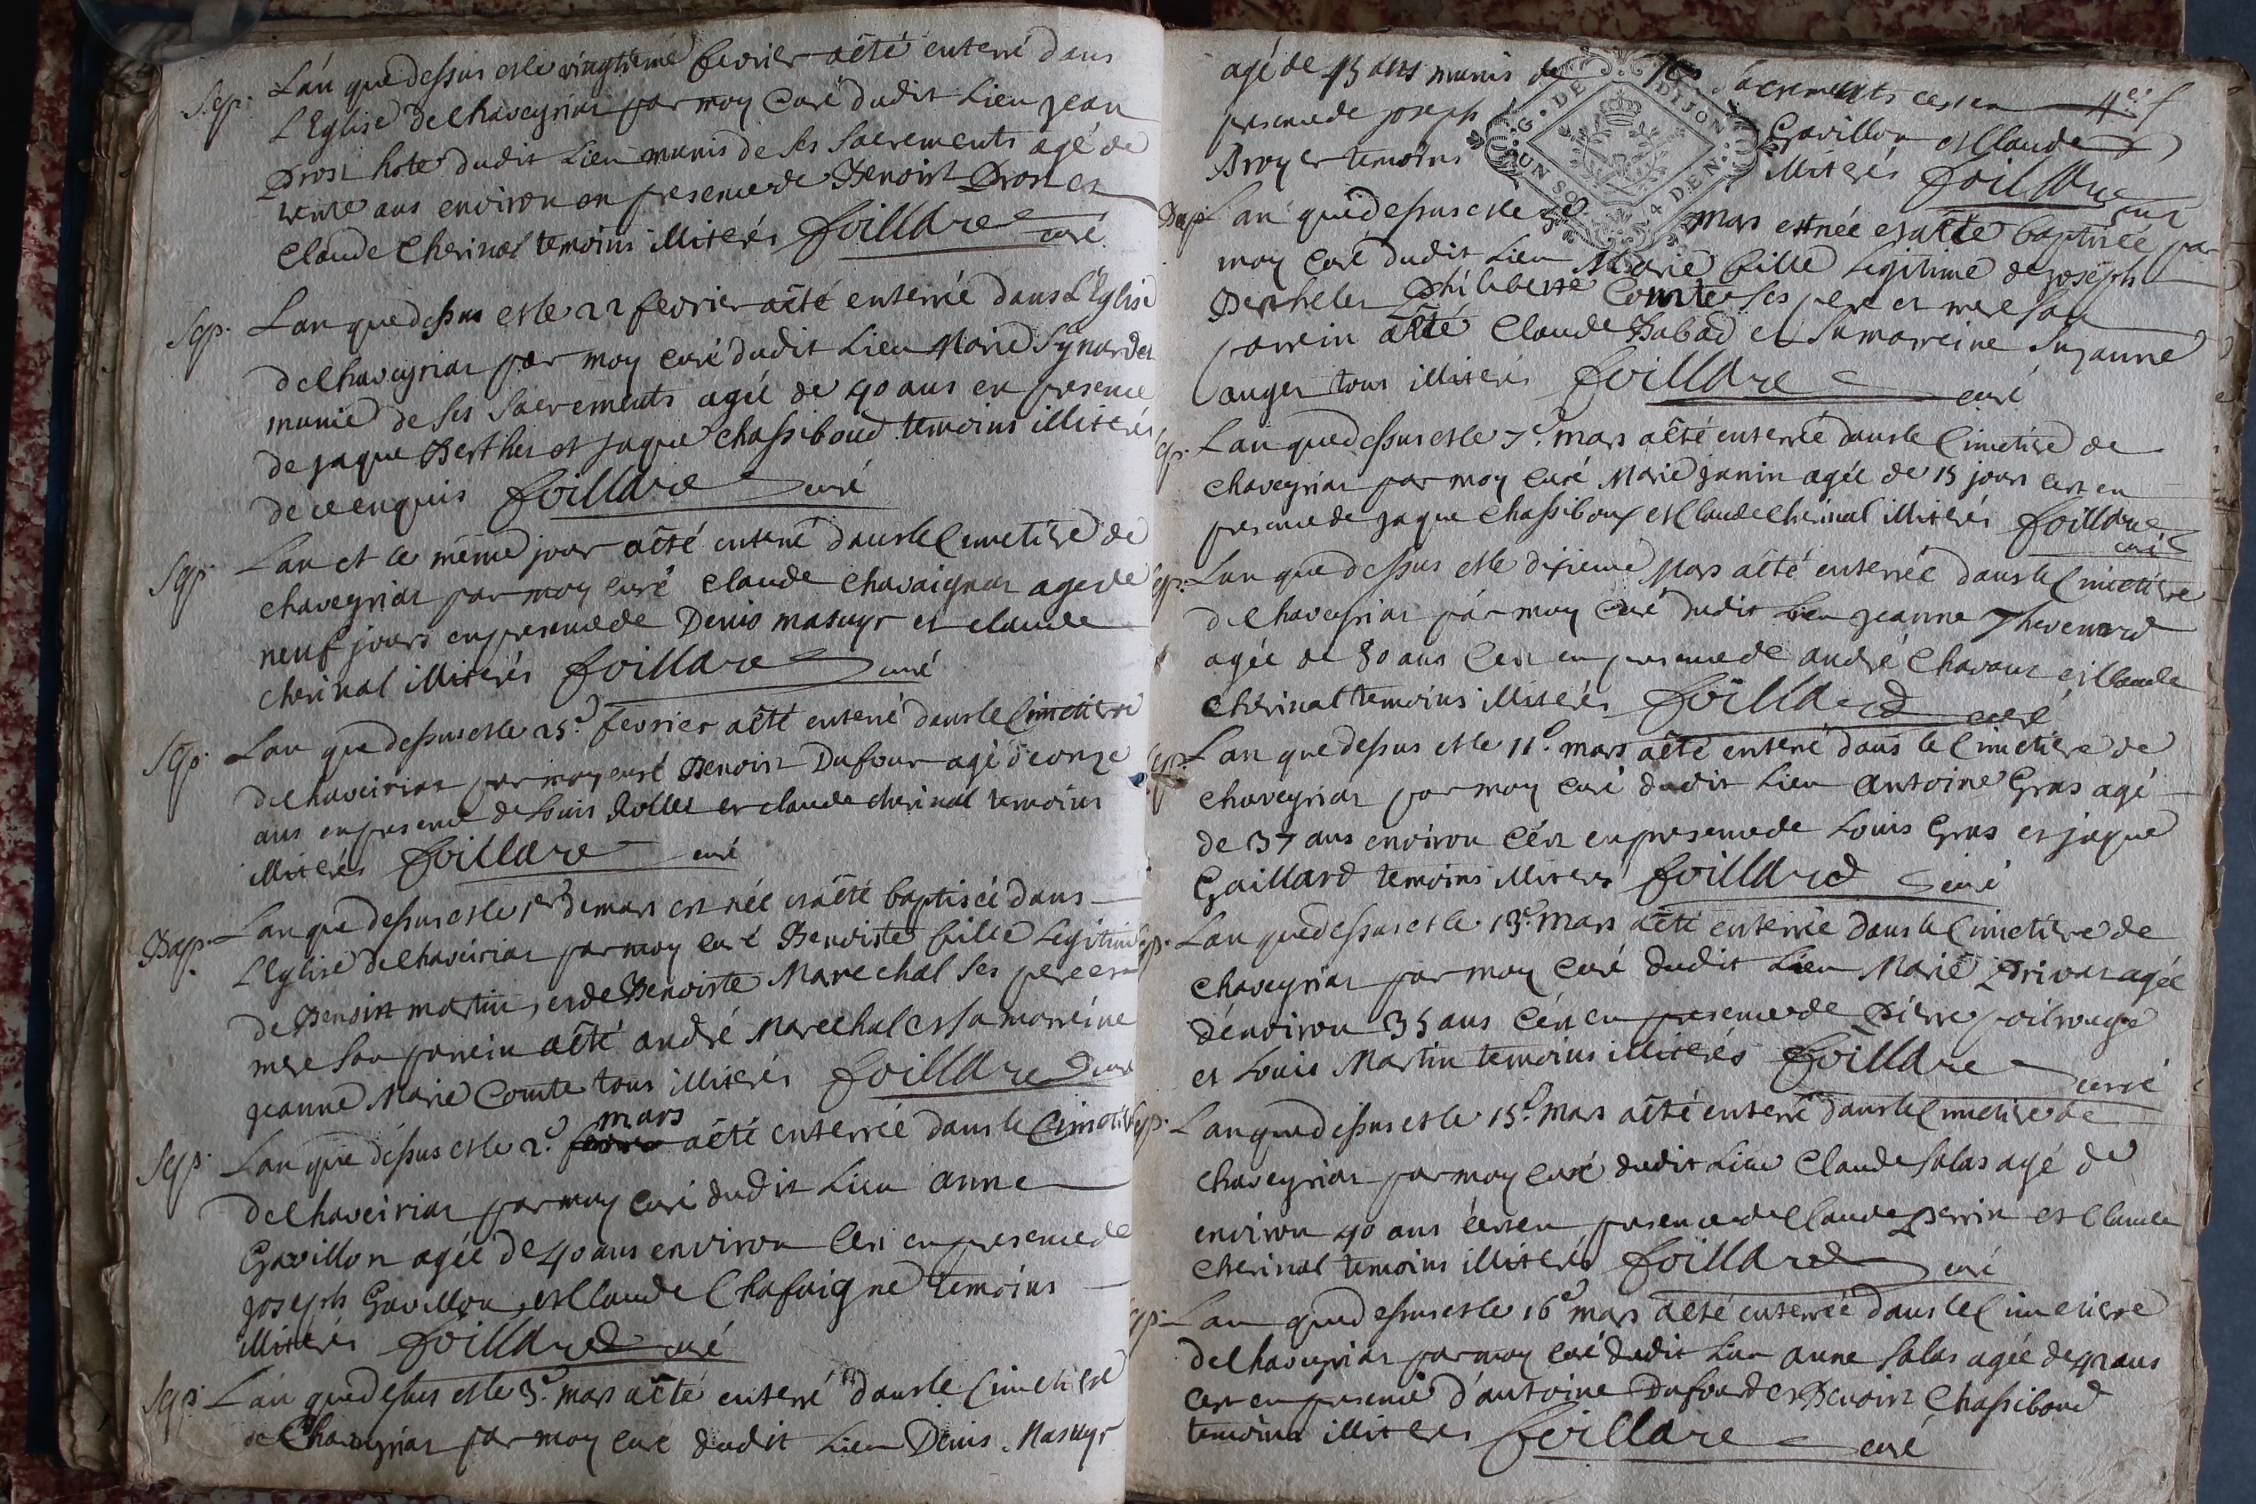 Sep. L'an que dessus et le vingtieme fevrier a été enterré dans
L'Eglise de Chaveyriat par moy Curé dudit Lieu jean
Prost hote dudit Lieu munis de ses Sacrements agé de
trente ans environ en presence de Benoist Prost et
Claude Cherinal temoins illiterés foillard curé
Sep. L'an que dessus et le 22 fevrier a été enterrée dans L'Eglise
de Chaveyriat par moy curé dudit Lieu Marie
munie de ses Sacrements agée de 40 ans en presence
de jaque Berthet et jaque Chassiboud temoins illiterés
de ce enquis foillard curé
Sep. L'an et le même jour a été enterré dans le Cimetiere de
Chaveyriat par moy curé Claude Chavaignat agé de
neuf jours en presence de Denis masuyr et claude
cherinal illiterés foillard curé
Sep. L'an que dessus et le 25e fevrier a été enterré dans le Cimetiere
de Chaveiriat par moy curé Benoist Dufour agé d'onze
ans en presence de Louis Rollet et claude cherinal temoins
illiterés foillard curé
Bap. L'an que dessus et le 1er de mars est née et a été baptisée dans
L'Eglise de Chaveiriat par moy curé Benoiste fille Legitime
de Benoist martin, et de Benoiste Marechal ses pere et
mere son parrein a été andré Marechal et sa marreine
jeanne Marie Comte tous illiterés foillard curé
mars
Sep. L'an que dessus et le 2e a été enterrée dans le Cimetiere
de Chaveiriat par moy Curé dudit Lieu anne
Gavillon agée de 40 ans environ C'est en presence de
joseph Gavillon, et Claude Chafaigne temoins
illiterés foillard curé
Sep. L'an que dessus et le 3e mars a été enterré dans le Cimetiere
de Chaveyriat par moy curé dudit Lieu Denis Masuyr
agé de 45 ans munis de ses Sacrements c'est en
presence de joseph Gavillon et Claude
Broyer temoins illiterés foillard curé
G. DE DIJON
UN SOL 4 DEN.
Bap. L'an que dessus et le mars est née et a été baptisée par
moy curé dudit Lieu Marie fille Legitime de joseph
Berthelet Philiberte Comte ses pere et mere son
parrein a été Claude Babad et sa marreine Suzanne
auger tous illiterés foillard curé
Sep. L'an que dessus et le 7e mars a été enterrée dans le Cimetiere de
Chaveyriat par moy curé Marie janin agée de 15 jours c'est en
presence de jaque Chassiboux et Claude Cherinal illiterés foillard
curé
Sep. L'an que dessus et le dixieme Mars a été enterrée dans le Cimetiere
de Chaveyriat par moy curé dudit Lieu jeanne Thevenard
agée de 80 ans C'est en presence de andré Chavant et Claude
Cherinal temoins illiterés foillard curé
Sep. L'an que dessus et le 11e mars a été enterré dans le Cimetiere de
Chaveyriat par moy curé dudit Lieu antoine Gras agé
de 37 ans environ C'est en presence de Louis Gras et jaque
Gaillard temoins illiterés foillard curé
Sep. L'an que dessus et le 13e mars a été enterrée dans le Cimetiere de
Chaveyriat par moy curé dudit Lieu Marie Privat agée
d'environ 35 ans C'est en presence de Pierre poilrouge
et Louis Martin temoins illiterés foillard curé
Sep. L'an que dessus et le 15e mars a été enterré dans le Cimetiere de
Chaveyriat par moy curé dudit Lieu Claude Salas agé de
environ 40 ans C'est en presence de Claude Perrin et Claude
Cherinal temoins illiterés foillard curé
Sep. L'an que dessus et le 16e mars a été enterrée dans le Cimetiere
de Chaveyriat par moy curé dudit Lieu anne Salas agée de 42 ans
c'est en presence d'antoine Dufour et Benoist Chassiboud
temoins illiterés foillard curé